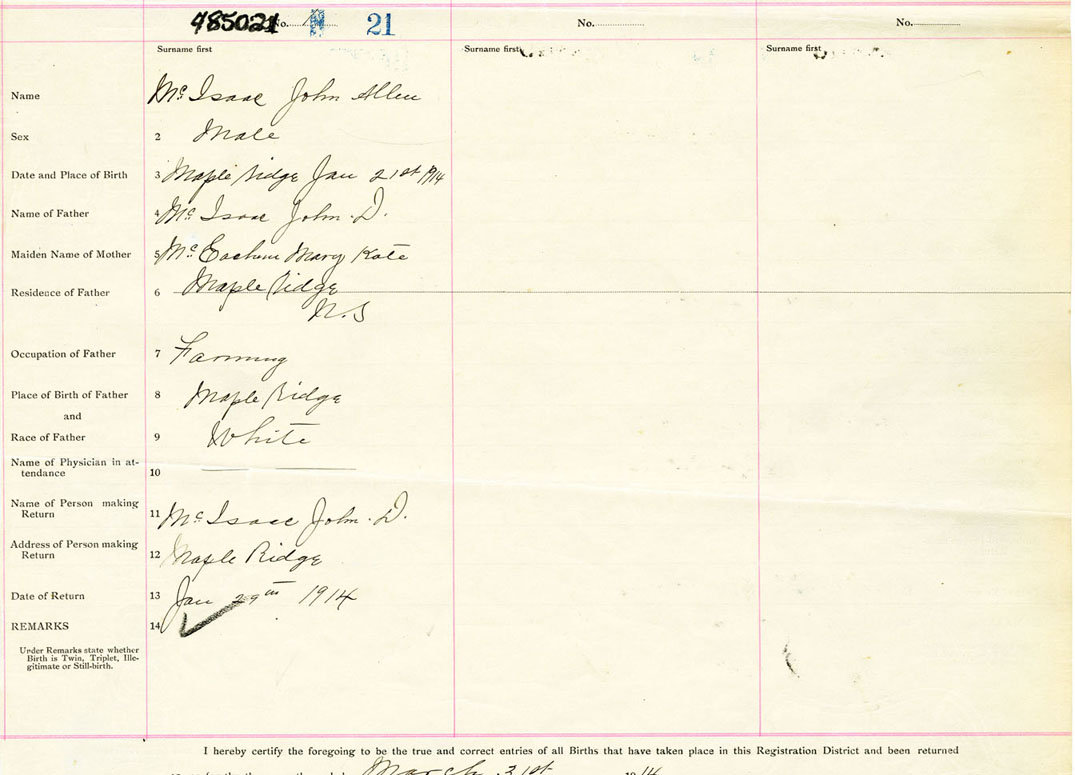 485021 No. 21 No. No.
Surname first Surname first Surname first
Name Mc Isaac John Allen
Sex 2 Male
Date and Place of Birth 3 Maple Ridge Jan 21st 1914
Name of Father 4 Mc Isaac John. D.
Maiden Name of Mother 5 Mc Eachern Mary Kate
Residence of Father 6 Maple Ridge
N.S
Occupation of Father 7 Farming
Place of Birth of Father 8 Maple Ridge
and
Race of Father 9 White
Name of Physician in at-
tendance 10
Name of Person making
Return 11 Mc Isaac John. D.
Address of Person making
Return 12 Maple Ridge
Date of Return 13 Jan 29th 1914
REMARKS 14
Under Remarks state whether
Birth is Twin, Triplet, Ille-
gitimate or Still-birth.
I hereby certify the foregoing to be the true and correct entries of all Births that have taken place in this Registration District and been returned
March 31st 1914